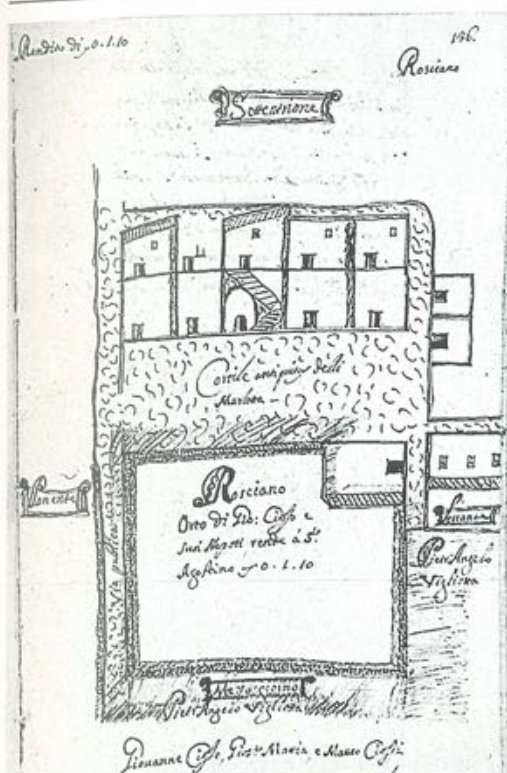 Rendito di 0.1.10
136.
Rosciano
Settentrione
Cortile delli
Ponente
Via publica
Rosciano
Orto di Gio: Cioffo e
suoi Neposti rende à S.
Agostino 0.1.10
Levante
Pietr'Angelo
Vigliova
Mezogiorno
Pietr'Angelo Vigliova
Giovanne Cioffo, Maria e Matteo Cioffi